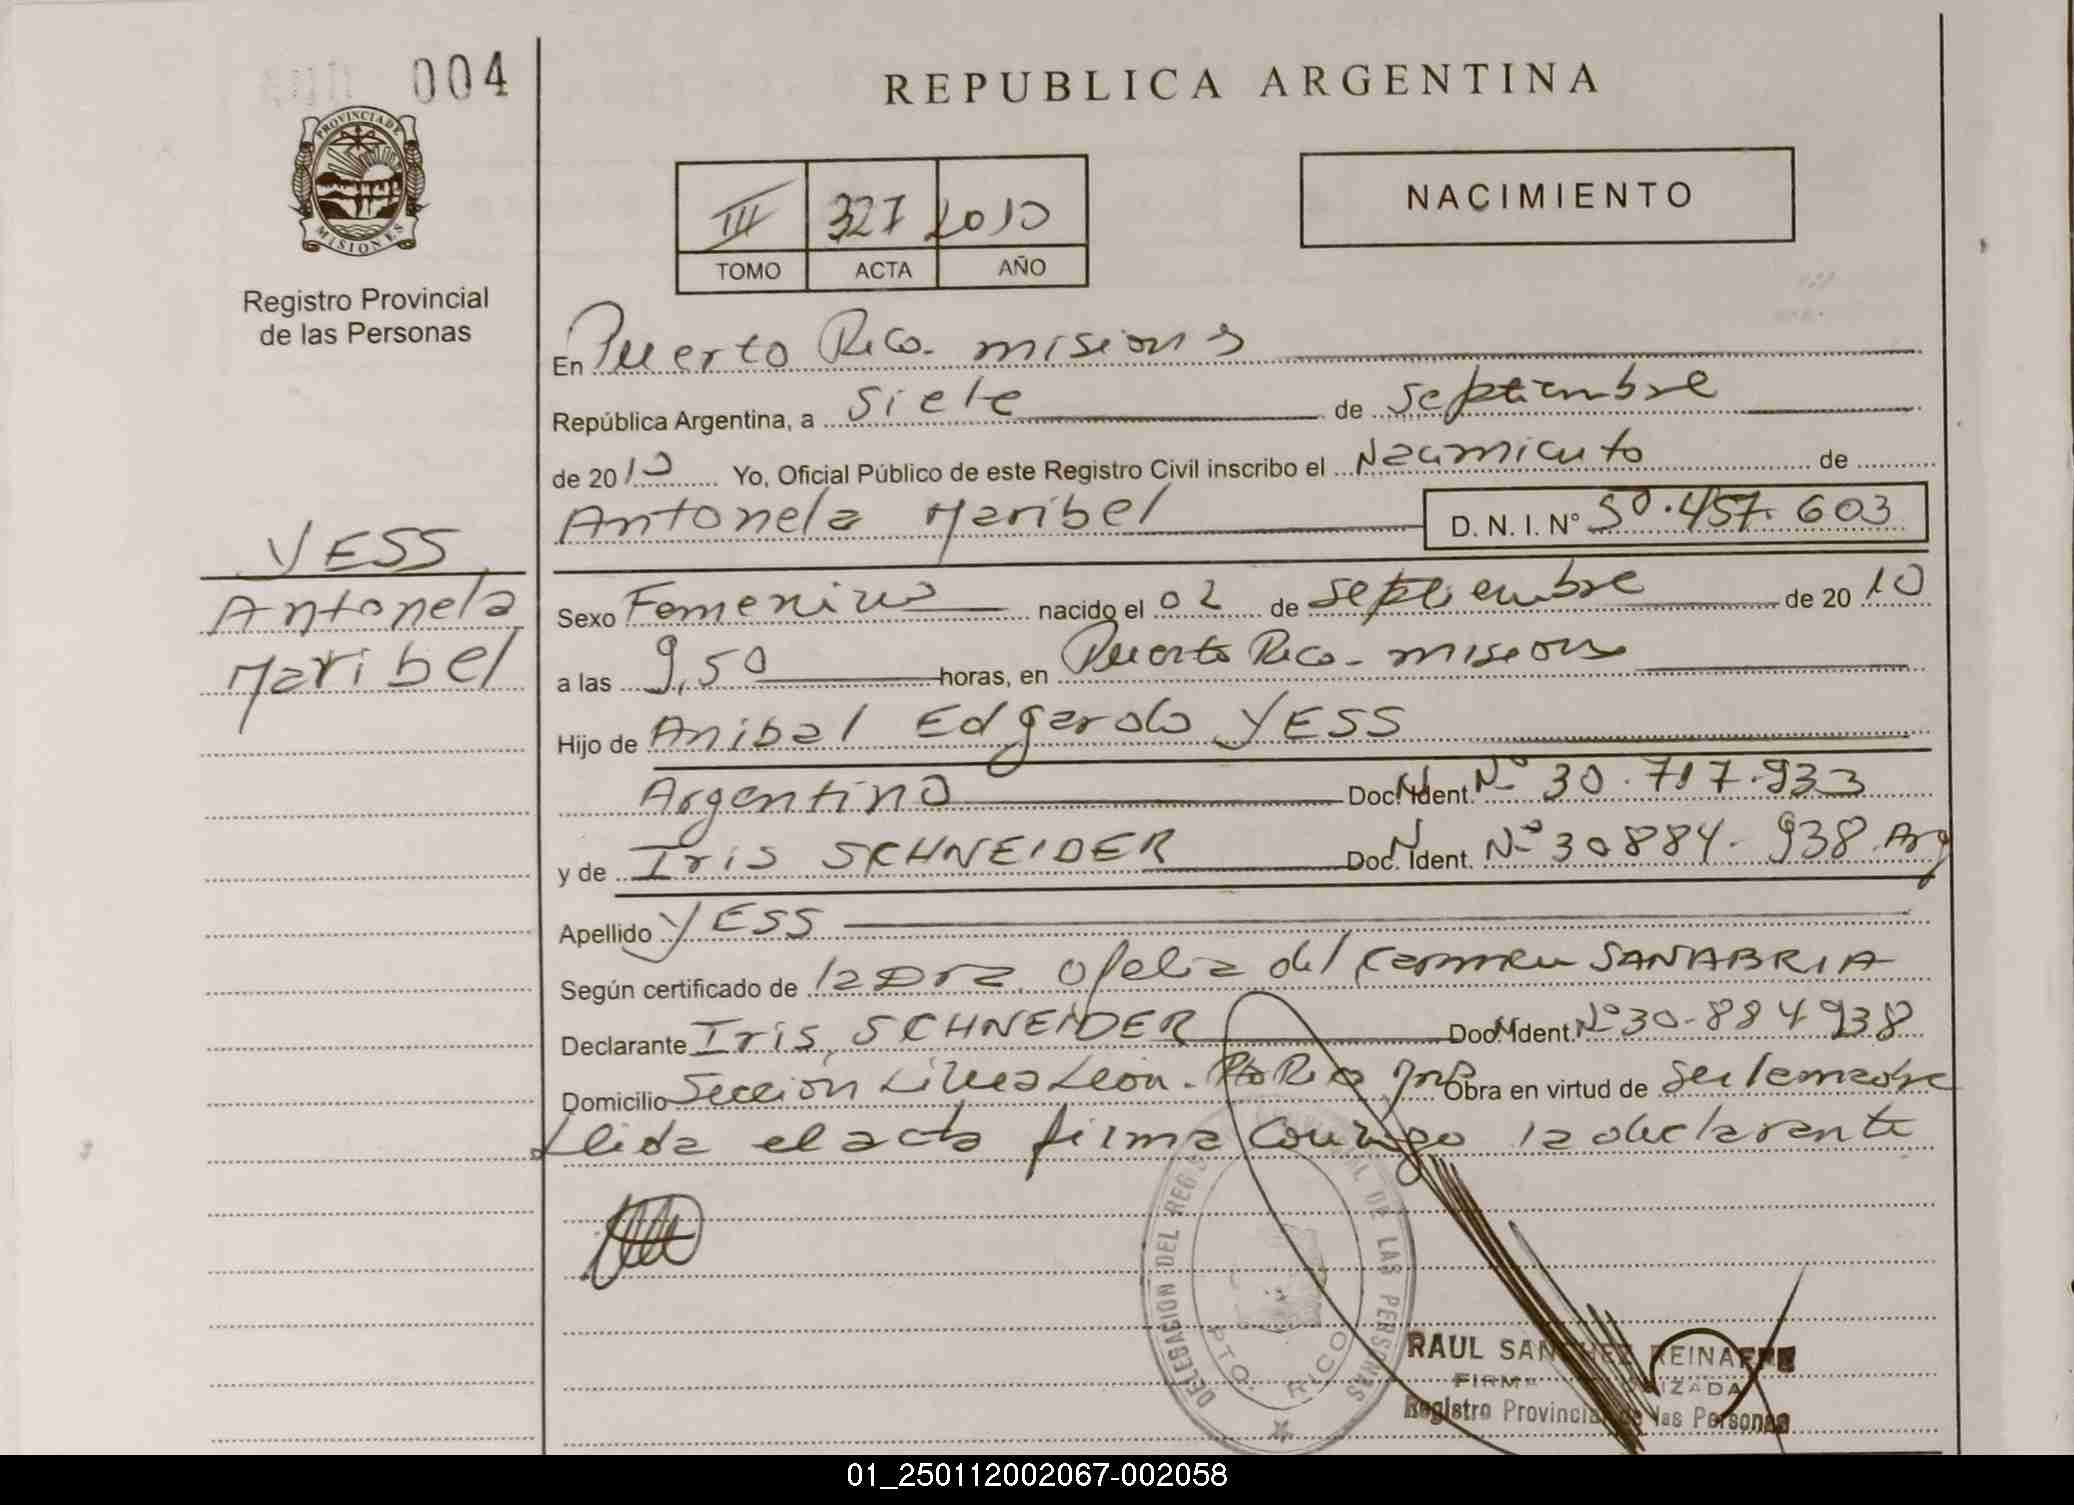 004
PROVINCIA DE
MISIONES
Registro Provincial
de las Personas
YESS
Antonela
Maribel
REPUBLICA ARGENTINA
III 327 2010
TOMO ACTA AÑO
NACIMIENTO
En Puerto Rico - misiones
República Argentina, a siete de septiembre
de 2010 Yo, Oficial Público de este Registro Civil inscribo el Nacimiento de
Antonela Maribel D. N. I. Nº 50.457.603
Sexo Femenino nacido el 02 de septiembre de 2010
a las 9,50 horas, en Puerto Rico - misiones
Hijo de Anibal Edgardo YESS
Argentino Doc. Ident. Nº 30.717.933
y de Iris SCHNEIDER Doc. Ident. Nº 30884.938 Arg
Apellido YESS
Según certificado de la Dra Ofelia del Carmen SANABRIA
Declarante Iris SCHNEIDER Doc. Ident. Nº 30.884938
Domicilio Sección Linea Leon - Pto Rico Obra en virtud de ser la madre
Leida el acta firma conmigo la declarante
DELEGACION DEL REGISTRO PROVINCIAL DE LAS PERSONAS
PTO. RICO
RAUL SANCHEZ
FIRMA AUTORIZADA
Registro Provincial de las Personas
01_250112002067-002058